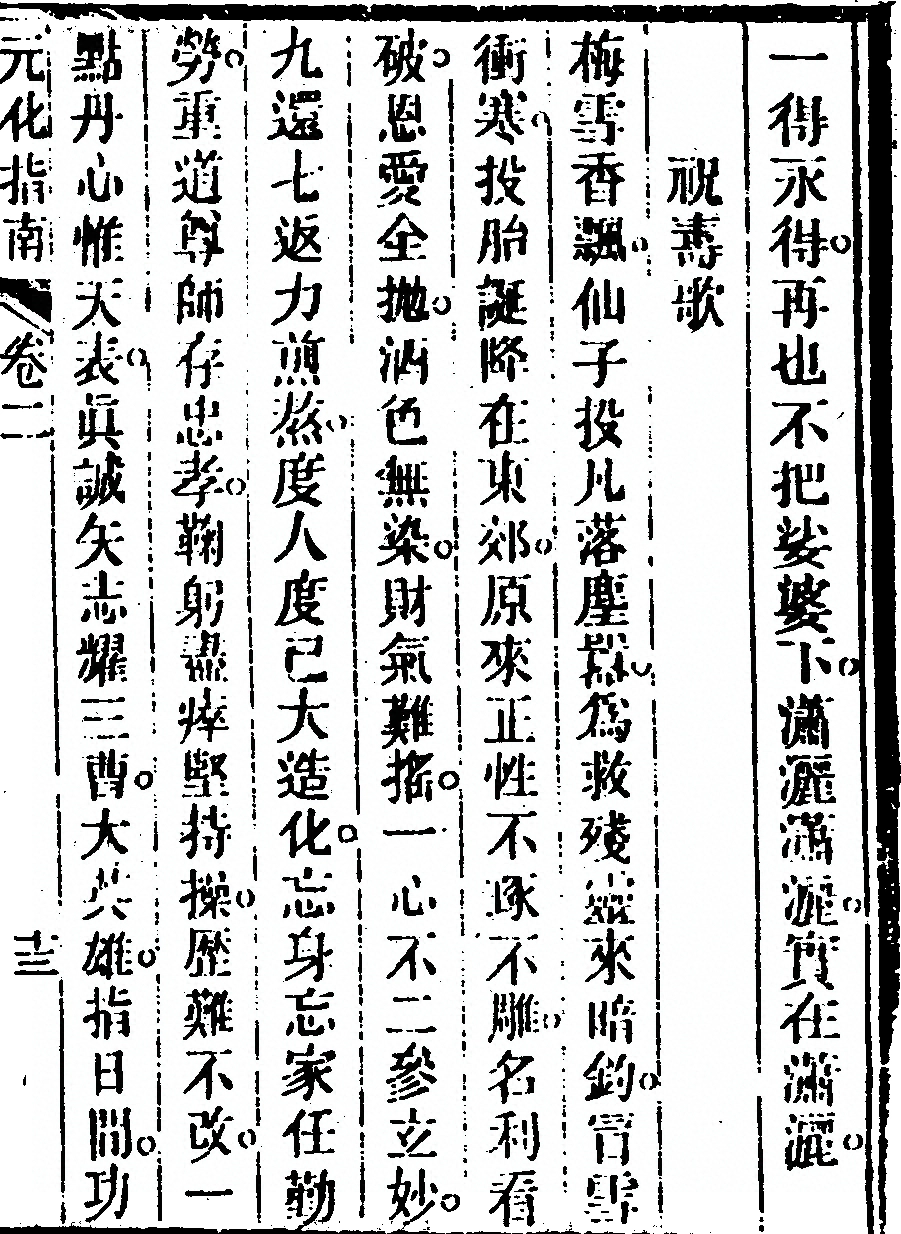 一得永得。再也不把娑婆下。瀟灑瀟灑。實在瀟灑。
祝壽歌
梅雪香飄。仙子投凡落塵囂。為救殘靈來暗釣。冒雪
衝寒。投胎誕降在東郊。原來正性不琢不雕。名利看
破。恩愛全拋。酒色無染。財氣難搖。一心不二參立妙。
九還七返力煎熬。度人度己大造化。忘身忘家任勤
勞。重道尊師存忠孝。鞠躬盡瘁堅持操。歷難不改。一
點丹心惟天表。眞誠矢志耀三曹。大英雄。指日間。功
元化指南 卷二 十三